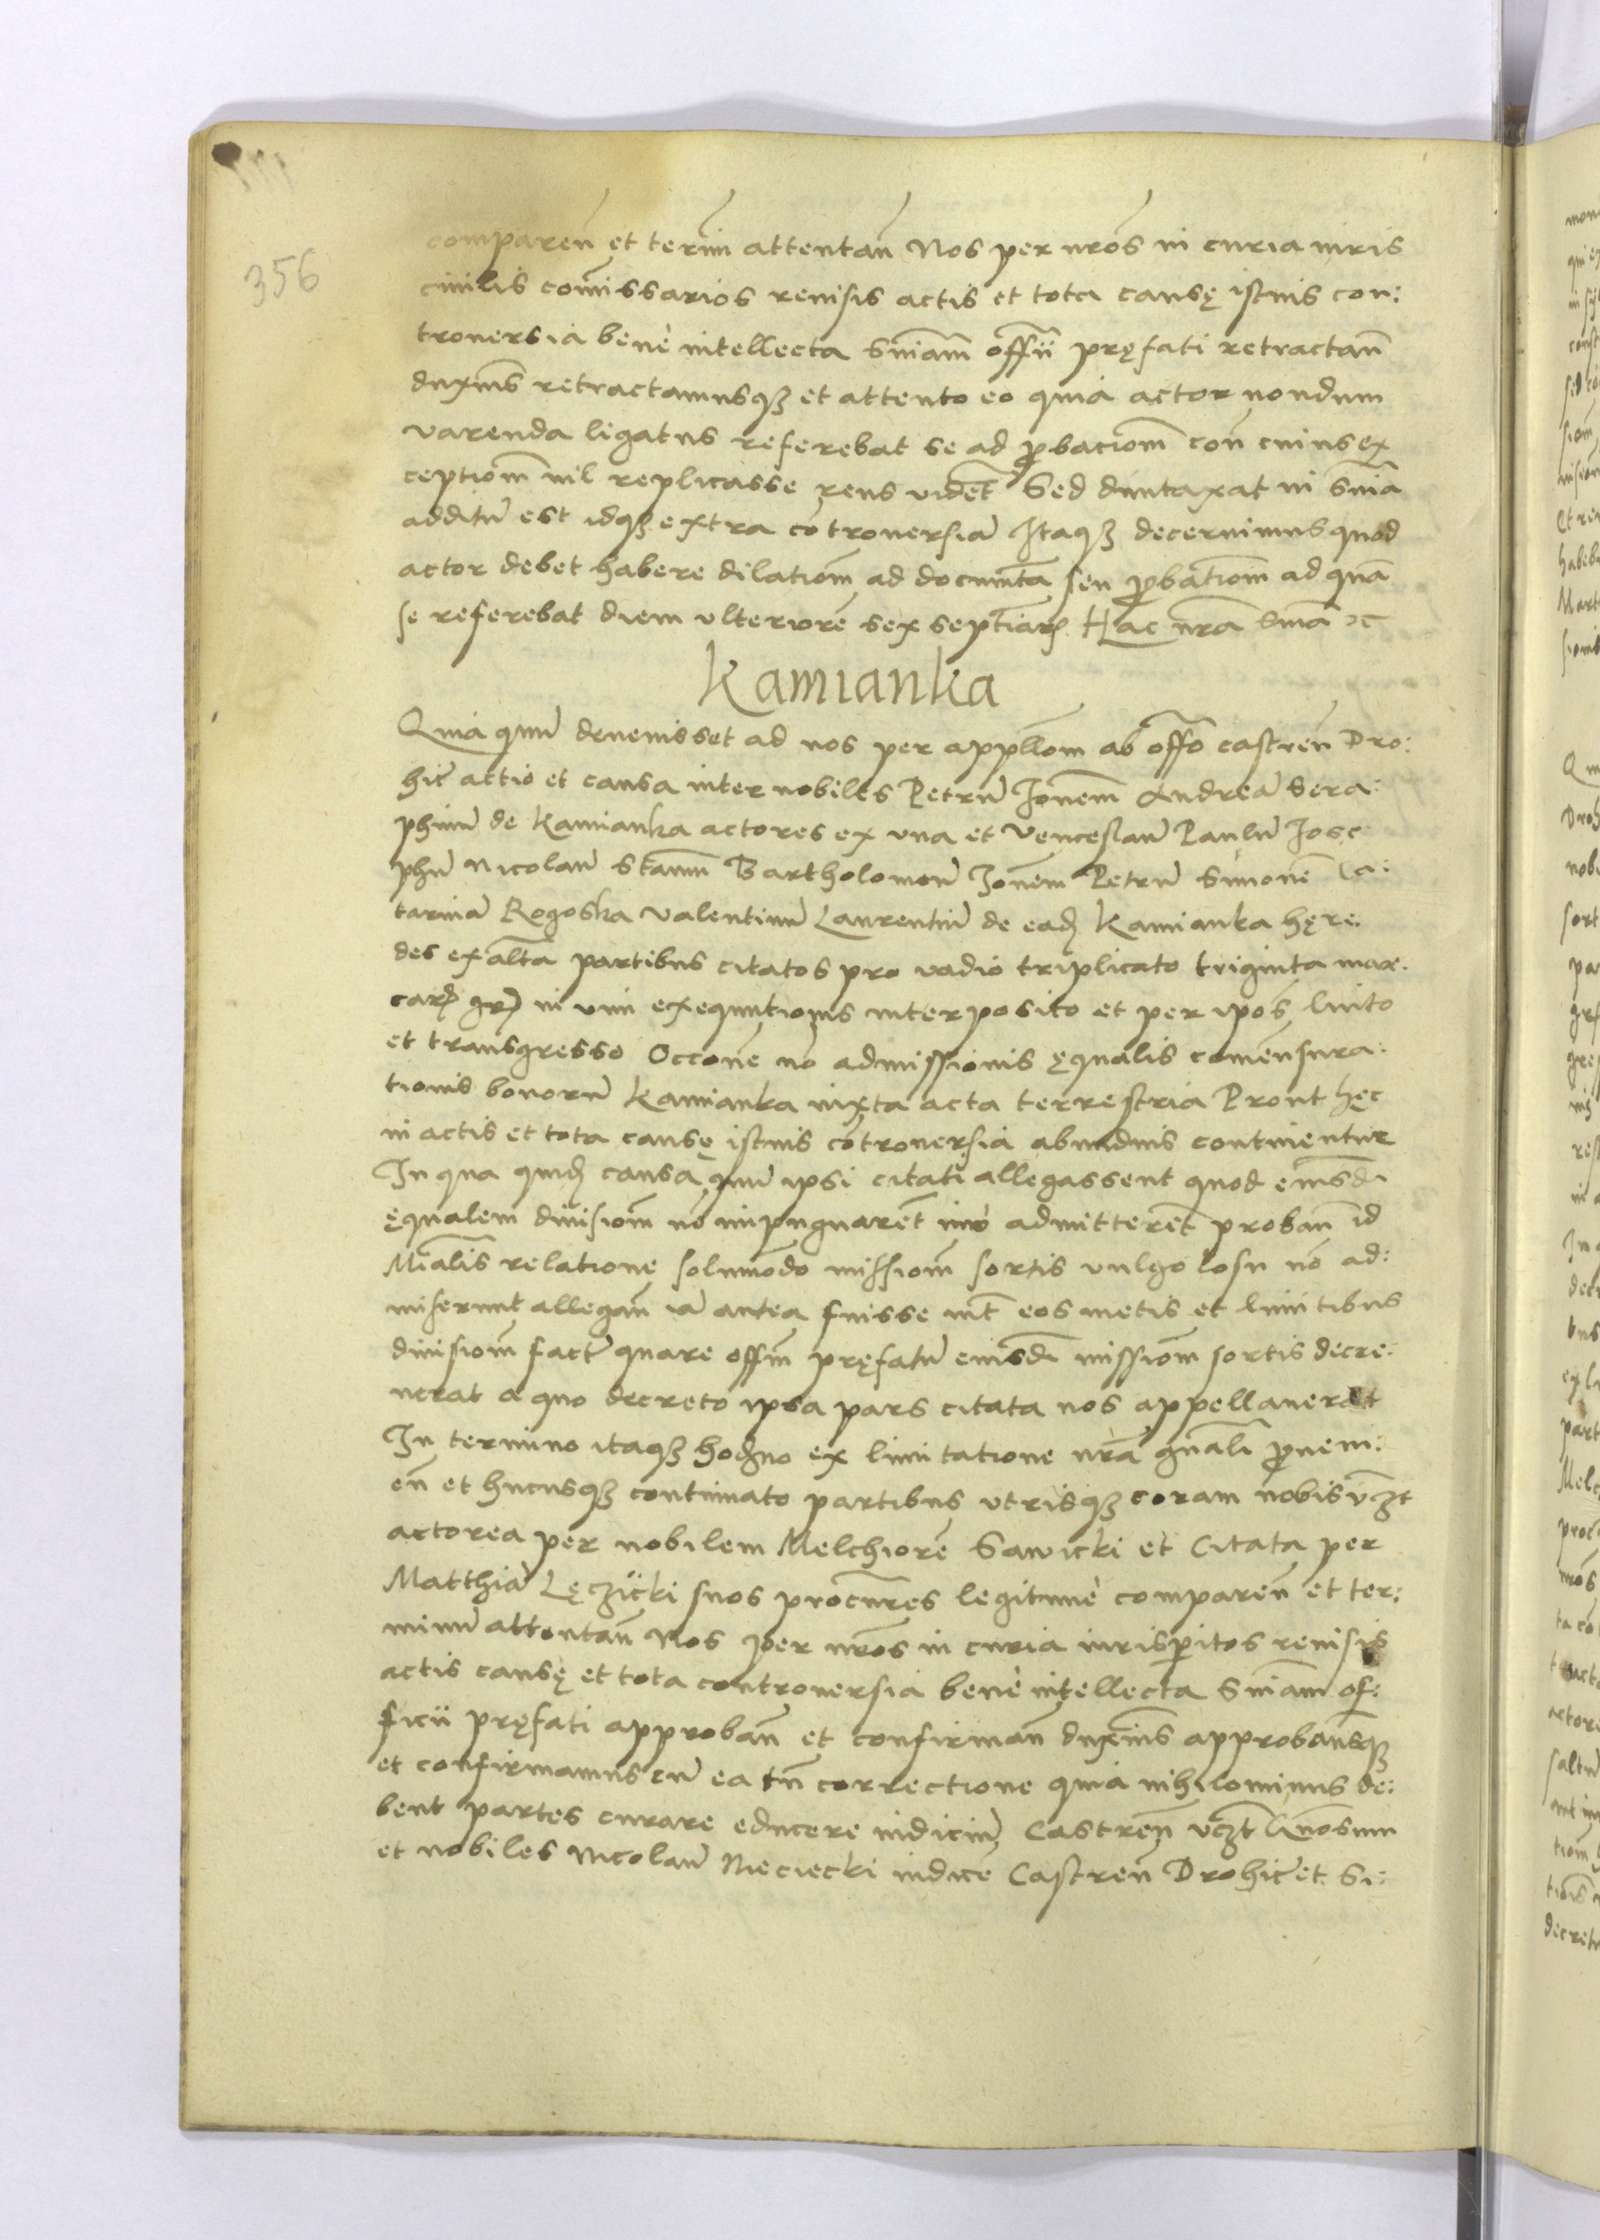 356
comparen̄ et term̄ attentan̄ Nos per nr̄os in curia iuris
ciuilis com̄issarios reuisis actis et tota causę istius con:
trouersia bene intellecta Sn̄iam off̄ii pręfati retractan̄
duxim̄s retractamusqꝫ et attento eo quia actor nondum
varenda ligatus referebat se ad ꝓbaciom̄ con̄ cuius ex
ceptiom̄ nil replicasse reus videt̄ Sed duntaxat in sn̄ia
additū est idqꝫ extra cōtrouersiā Itaqꝫ decernimus quod
actor debet habere dilatiom̄ ad documt̄a seu ꝓbatiom̄ ad quā
se referebat diem vlteriorē sex septīarꝫ Hac nr̄a sn̄ia ꝛc
Kamianka
Quia quū deuenisset ad nos per appll̄om ab off̄o castren̄ Dro:
hic̄ actio et causa inter nobiles Petrū Joan̄em Andreā Sera:
phinū de Kamianka actores ex vna et Venceslaū Paulū Jose
phū Nicolaū Stan̄m Bartholomeū Joan̄em Petrū Simonē Ca:
tarinā Rogoska Valentinū Laurentiū de eadꝫ Kamianka hęre:
des ex alt̄a partibus citatos pro vadio triplicato triginta mar:
carꝫ grꝫ in vim exequutionis interposito et per ip̄os luito
et transgresso Occōne nō admissionis ęqualis comēnsura:
tionis bonorū Kamianka iuxta acta terrestria Prout hęc
in actis et tota causę istius cōtrouersia abundius continentur
In qua quidꝫ causa quū ipsi citati allegassent quod eiusd̄i
ęqualem diuisiom̄ nō impugnarēt imo admitterēt proban̄ id
Mīalis relatione solummōdo missiom̄ sortis vulgo losu nō ad:
miserunt allegan̄ iā antea fuisse int̄ eos metis et limitibus
diuisiom̄ factā quare offm̄ pręfatū eiusd̄i missiom̄ sortis decre:
uerat a quo decreto ipsa pars citata nos appellauerat
In termino itaqꝫ hodꝫno ex limitatione nr̄a gn̄ali ꝓueni:
en̄ et hucusqꝫ continuato partibus vtrisqꝫ coram nobis vꝫt
actorea per nobilem Melchiorē Sawicki et Citata per
Matthiā Lęczicki suos procurēs legitime comparen̄ et ter:
minū attentan̄ Nos per nr̄os in curia iurisperitos reuisis
actis causę et tota controuersia bene intellecta Sn̄iam of:
ficii pręfati approban̄ et confirman̄ duxim̄s approbam̄sqꝫ
et confirmamus cū ea tn̄ correctione quia nihilominus de:
bent partes curare educere iudiciū Castren̄ vꝫt Gn̄osum
et nobiles Nicolaū Nieciecki iudicē Castren̄ Drohic̄ et Si: